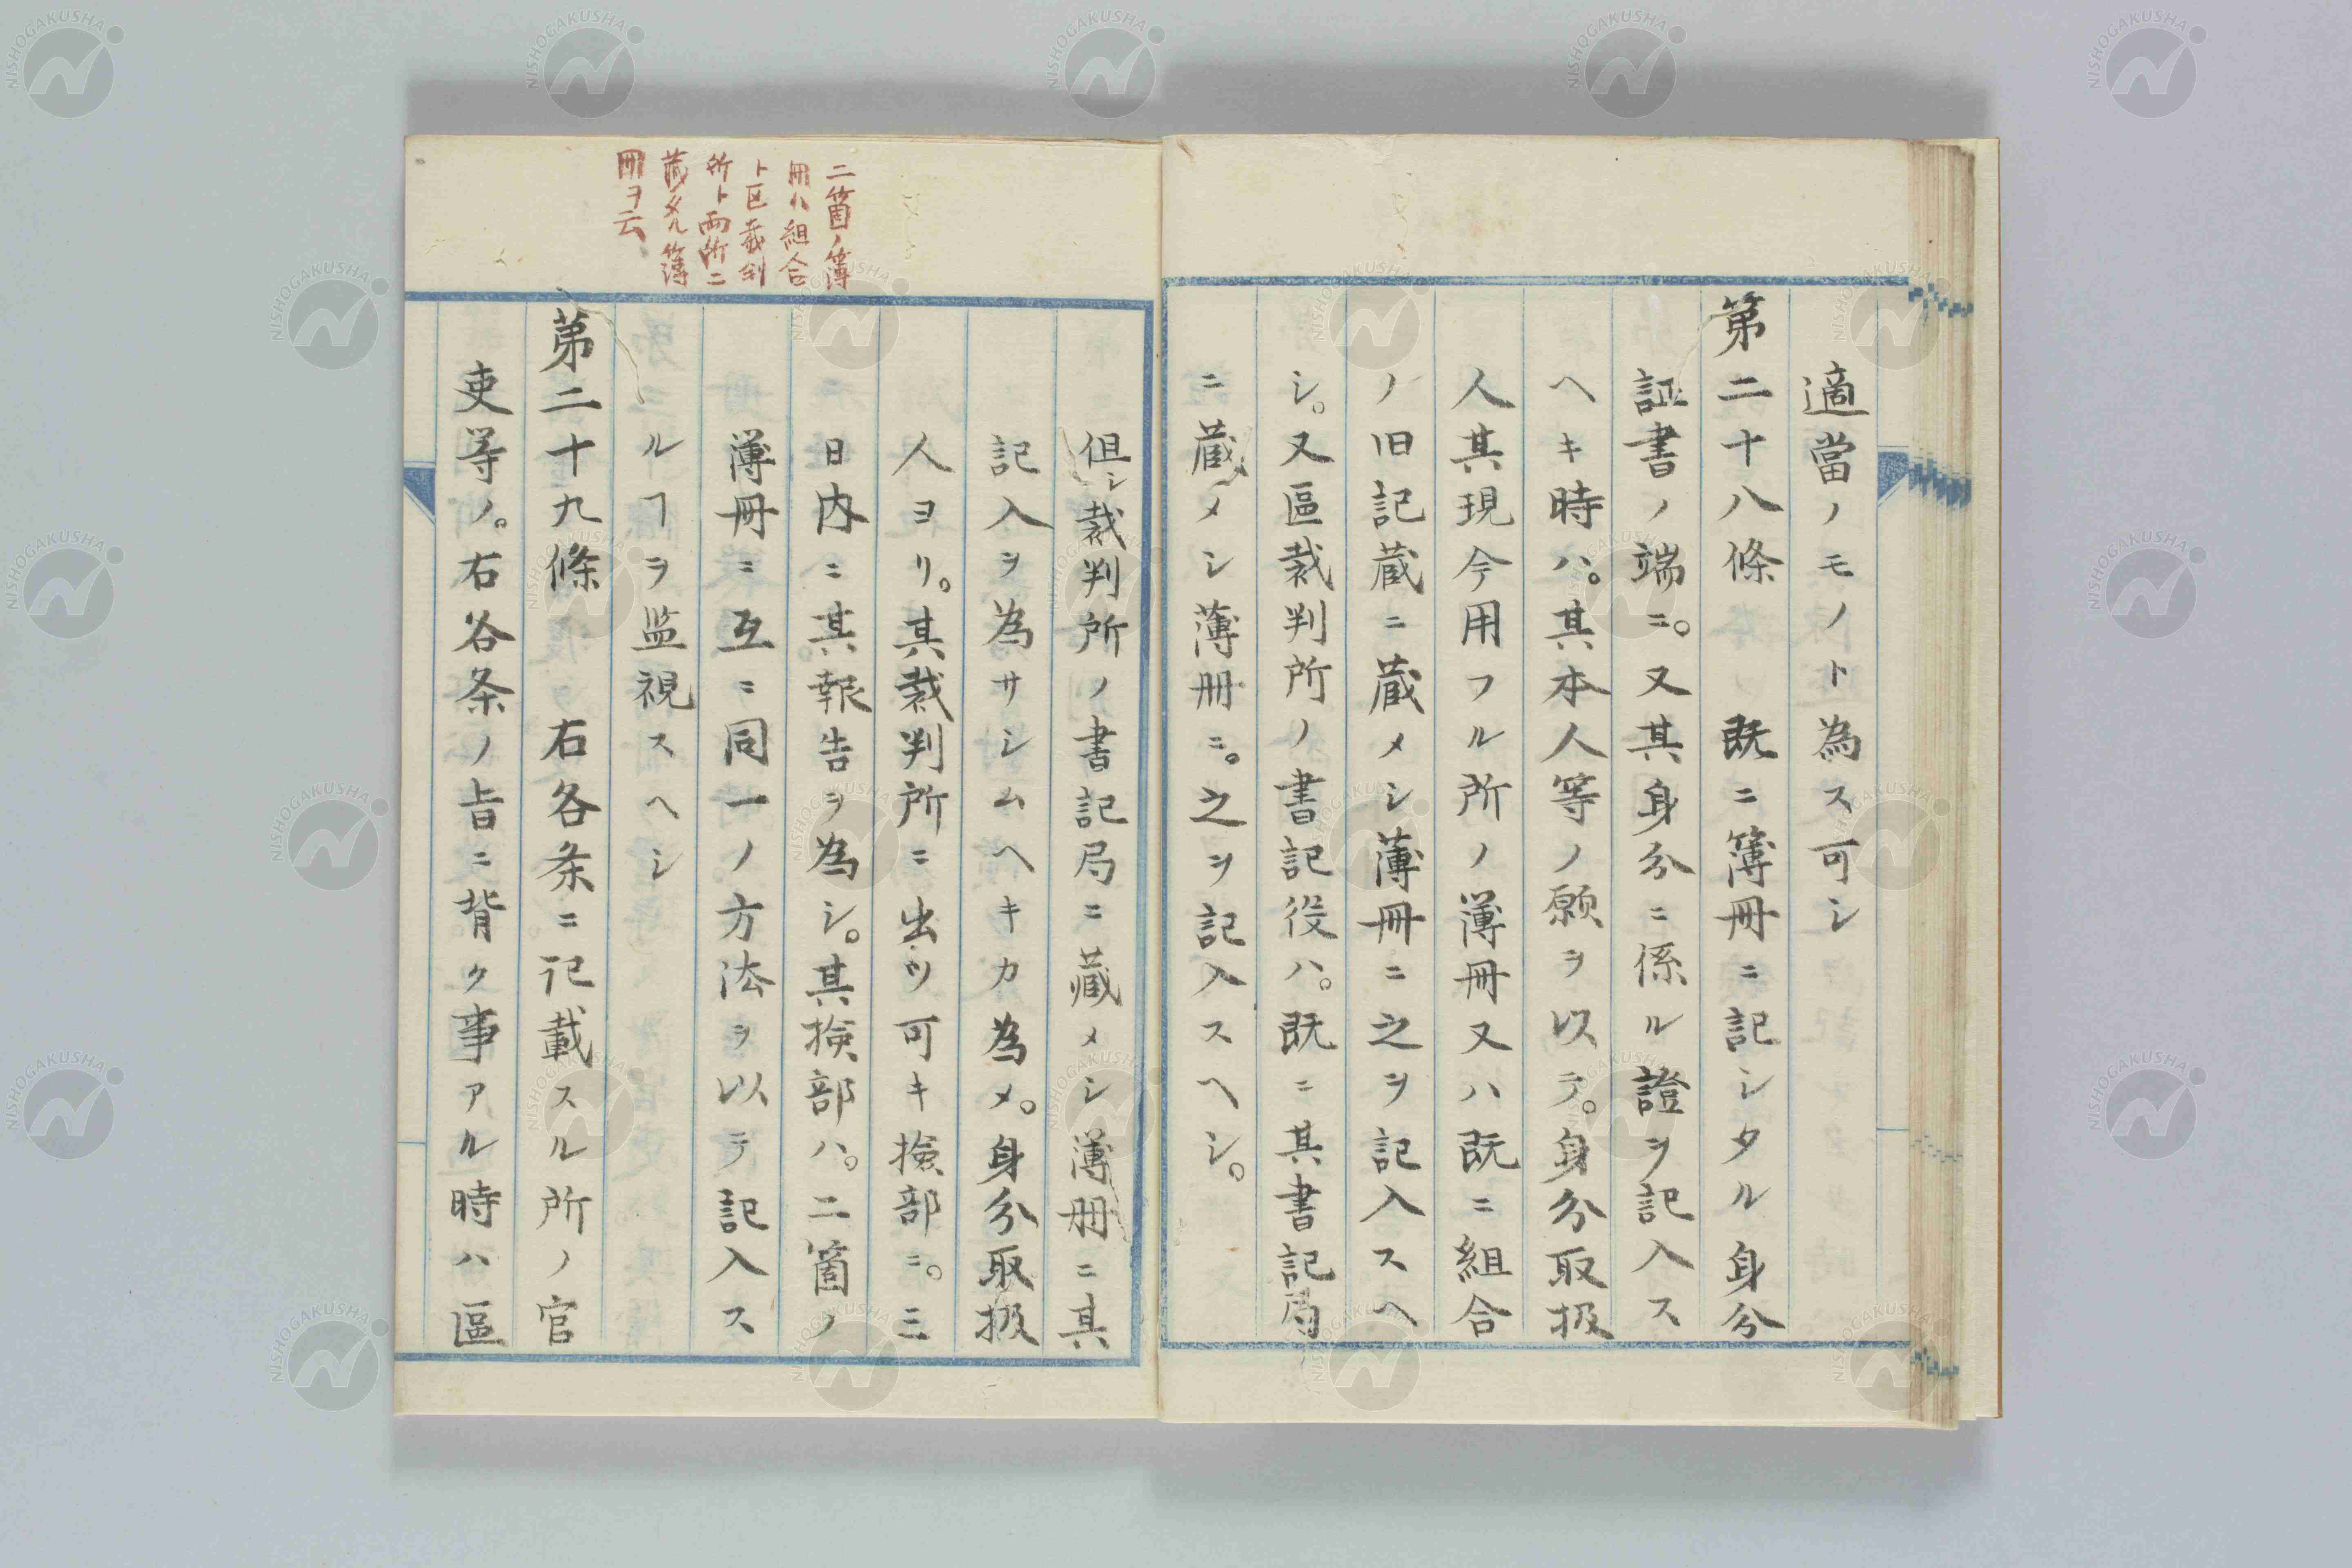 適當ノモノト為ス可シ
第二十八條　既ニ簿冊ニ記シタル身分
証書ノ端ニ。又其身分ニ係ル證ヲ記入ス
ヘキ時ハ。其本人等ノ願ヲ以テ。身分取扱
人其現今用フル所ノ簿冊又ハ既ニ組合
ノ旧記蔵ニ蔵メシ簿冊ニ之ヲ記入スヘ
シ。又區裁判所ノ書記役ハ。既ニ其書記局
ニ蔵メシ簿冊ニ。之ヲ記入スヘシ。
二箇ノ簿
冊ハ組合
ト区裁判
所ト両所ニ
蔵メタル簿
冊ヲ云
但シ裁判所ノ書記局ニ藏メシ簿冊ニ其
記入ヲ為サシムヘキカ為メ。身分取扱
人ヨリ。其裁判所ニ出ツ可キ撿部ニ。三
日内ニ其報告ヲ為シ。其撿部ハ。二箇ノ
簿冊ニ互ニ同一ノ方法ヲ以テ記入ス
ルヿヲ监視スヘシ
第二十九條　右各条ニ記載スル所ノ官
吏等ノ。右各条ノ旨ニ背ク事アル時ハ區
NISHOGAKUSHA